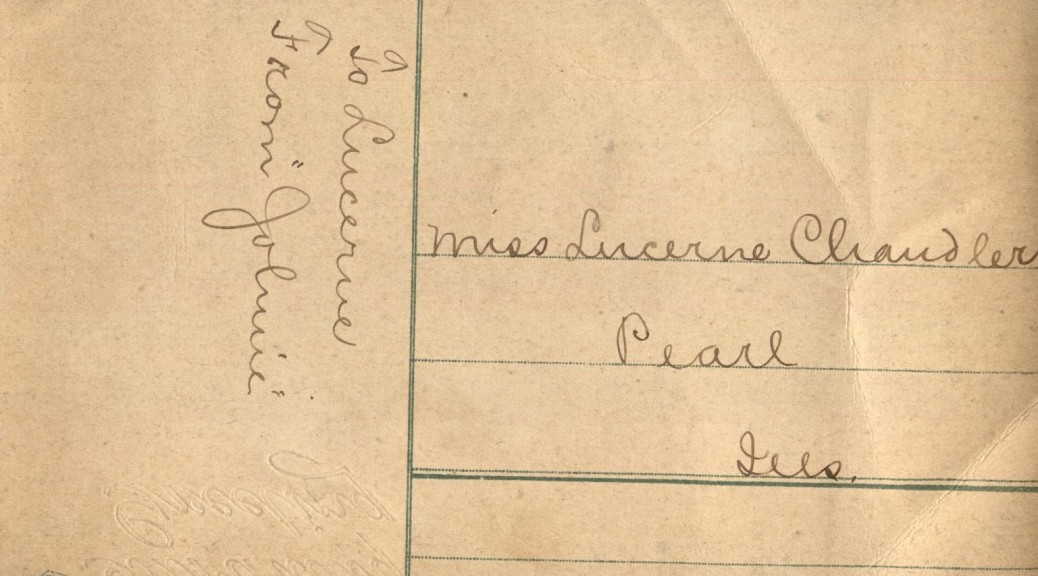 To Lucerne
From "Johnie"
Miss Lucerne Chandler
Pearl
Ills.